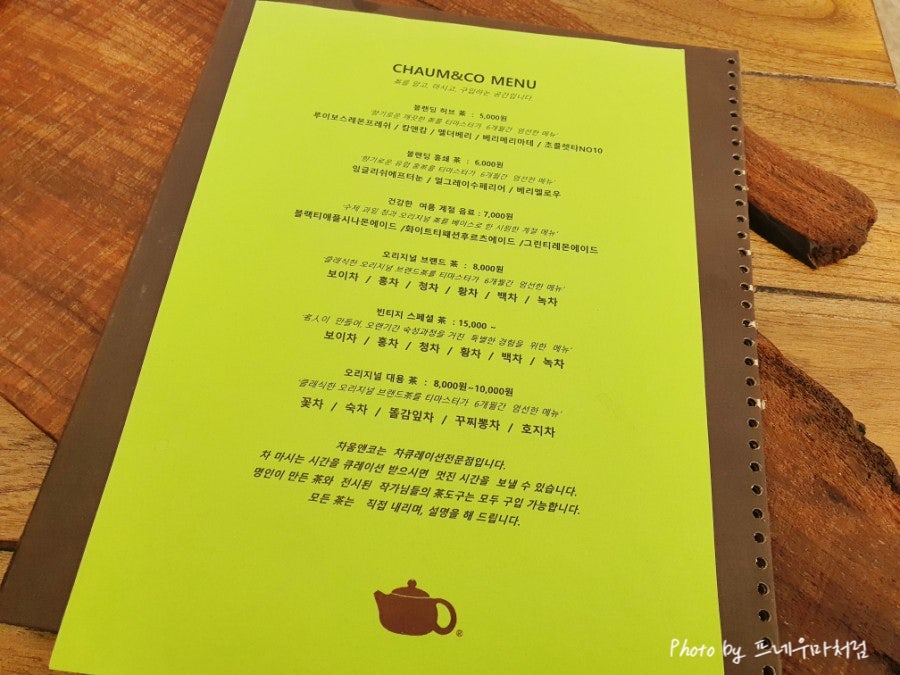 CHAUM&CO MENU
차를 알고, 마시고, 구입하는 공간입니다.
블랜딩 허브 茶 : 5,000원
'향기로운 깨끗한 茶를 티마스타가 6개월간 엄선한 메뉴'
루이보스레몬프레쉬 / 캄앤캄 / 엘더베리 / 베리베리마테 / 초콜렛타NO10
블랜딩 홍쇄 茶 : 6,000원
'향기로운 유럽 홍茶를 티마스타가 6개월간 엄선한 메뉴'
잉글리쉬에프터눈 / 얼그레이수페리어 / 베리옐로우
건강한 여름 계절 음료 : 7,000원
'수제 과일 청과 오리지널 茶를 베이스로 한 시원한 계절 메뉴'
블랙티애플시나몬에이드 /화이트티패션후르츠에이드 /그린티레몬에이드
오리지널 브랜드 茶 : 8,000원
'클래식한 오리지널 브랜드茶를 티마스타가 6개월간 엄선한 메뉴'
보이차 / 홍차 / 청차 / 황차 / 백차 / 녹차
빈티지 스페셜 茶 : 15,000 ~
'名人이 만들어, 오랜기간 숙성과정을 거진 특별한 경험을 위한 메뉴'
보이차 / 홍차 / 청차 / 황차 / 백차 / 녹차
오리지널 대용 茶 : 8,000원~10,000원
'클래식한 오리지널 브랜드茶를 티마스타가 6개월간 엄선한 메뉴'
꽃차 / 숙차 / 똘감잎차 / 꾸찌뽕차 / 호지차
차움앤코는 차큐레이션전문점입니다.
차 마시는 시간을 큐레이션 받으시면 멋진 시간을 보낼 수 있습니다.
명인이 만든 茶와 전시된 작가님들의 茶도구는 모두 구입 가능합니다.
모든 茶는 직접 내리며, 설명을 해 드립니다.
®
Photo by 프네우마처럼